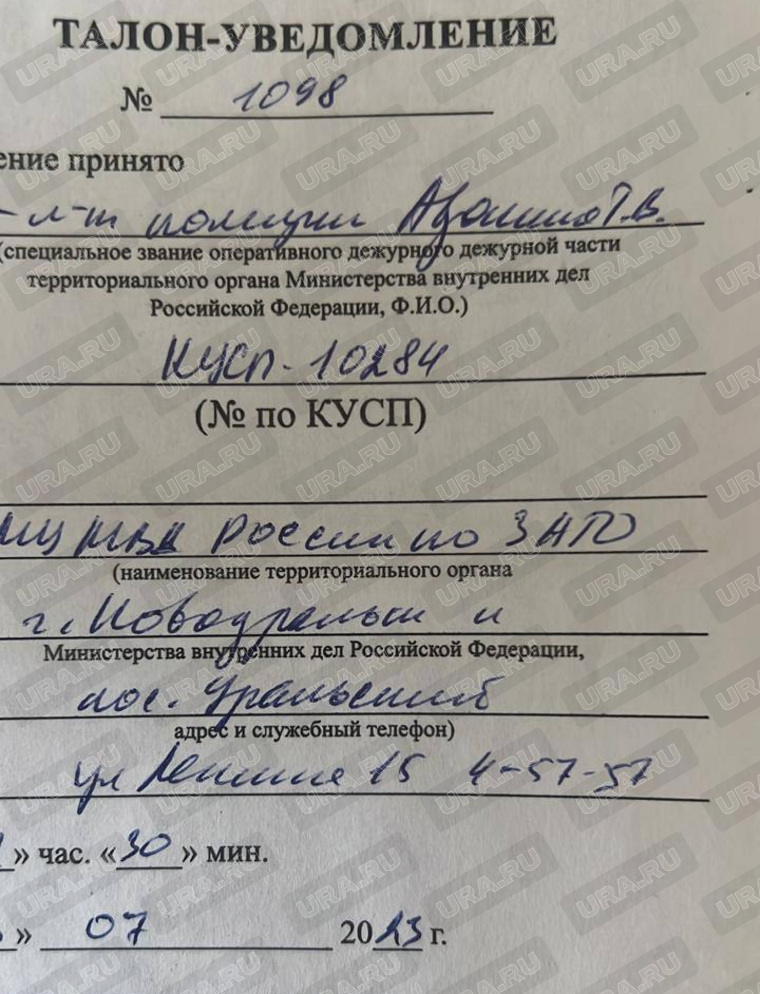 ТАЛОН-УВЕДОМЛЕНИЕ
№ 1098
ение принято
-л-т полиции Т.В.
(специальное звание оперативного дежурного дежурной части
территориального органа Министерства внутренних дел
Российской Федерации, Ф.И.О.)
КУСП-10284
(№ по КУСП)
МУ МВД России по ЗАТО
(наименование территориального органа
г. Новоуральск и
Министерства внутренних дел Российской Федерации,
пос. Уральский
адрес и служебный телефон)
ул Ленина 15 4-57-57
» час. «30» мин.
» 07 2023 г.
URA.RU